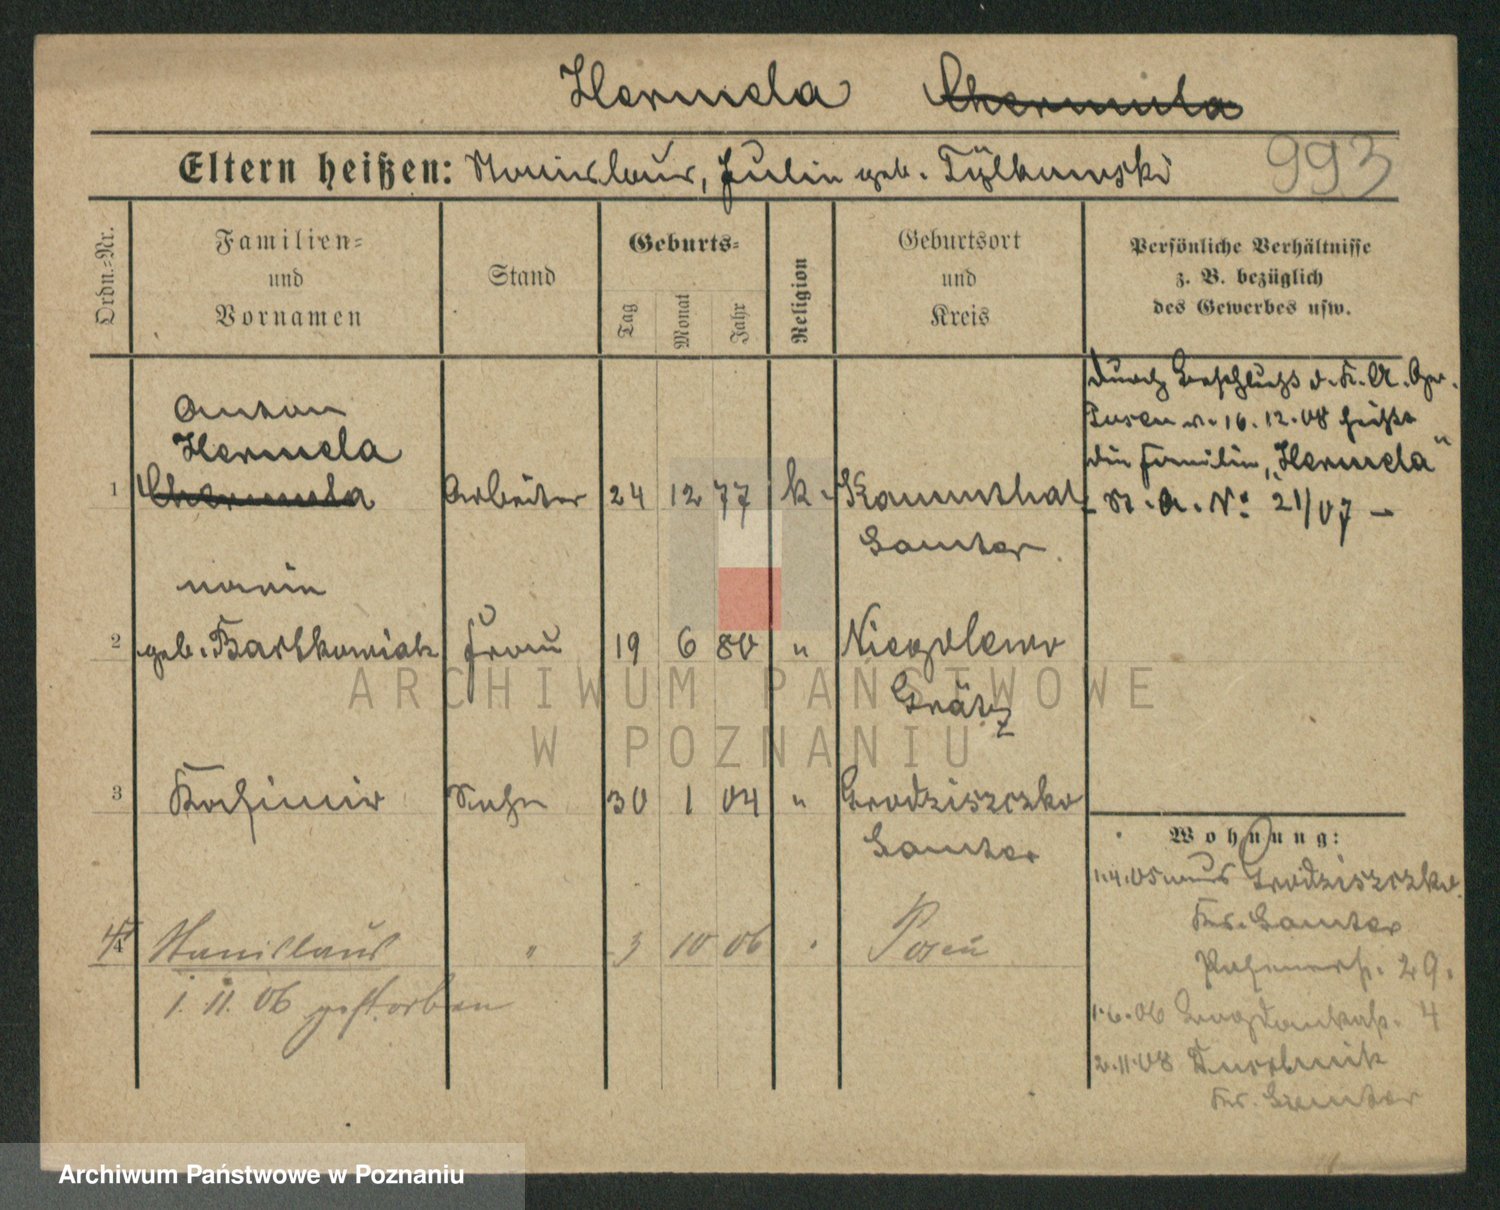 Hermela Chermula
Eltern heißen: Stanislaus, Julie geb. Tylkowski 993
Ordn.=Nr.
Familien=
und
Vornamen
Stand
Geburts=
Tag
Monat
Jahr
Religion
Geburtsort
und
Kreis
Persönliche Verhältnisse
z. B. bezüglich
des Gewerbes usw.
durch Beschluß d. K. A. Ger.
Posen v. 16.12.08 heißt
die Familie „Hermela“
A. No 21/07 –
Anton
Hermela
1 Chermula Arbeiter 24 12 77 k. Kammthal
Samter
Marie
2 geb. Bartkowiak Frau 19 6 80 "
Grätz
3 Kasimir Sohn 30 1 04 " Grodziszczko
Samter
4 Stanislaus " 3 10 06 " Posen
1. 11. 06 gestorben
Wohnung:
1.4.05 aus Grodziszczko
Kr. Samter
29.
1.6.06 4
2.11.08 Dusznik
Kr. Samter
ARCHIWUM PAŃSTWOWE
W POZNANIU
Archiwum Państwowe w Poznaniu